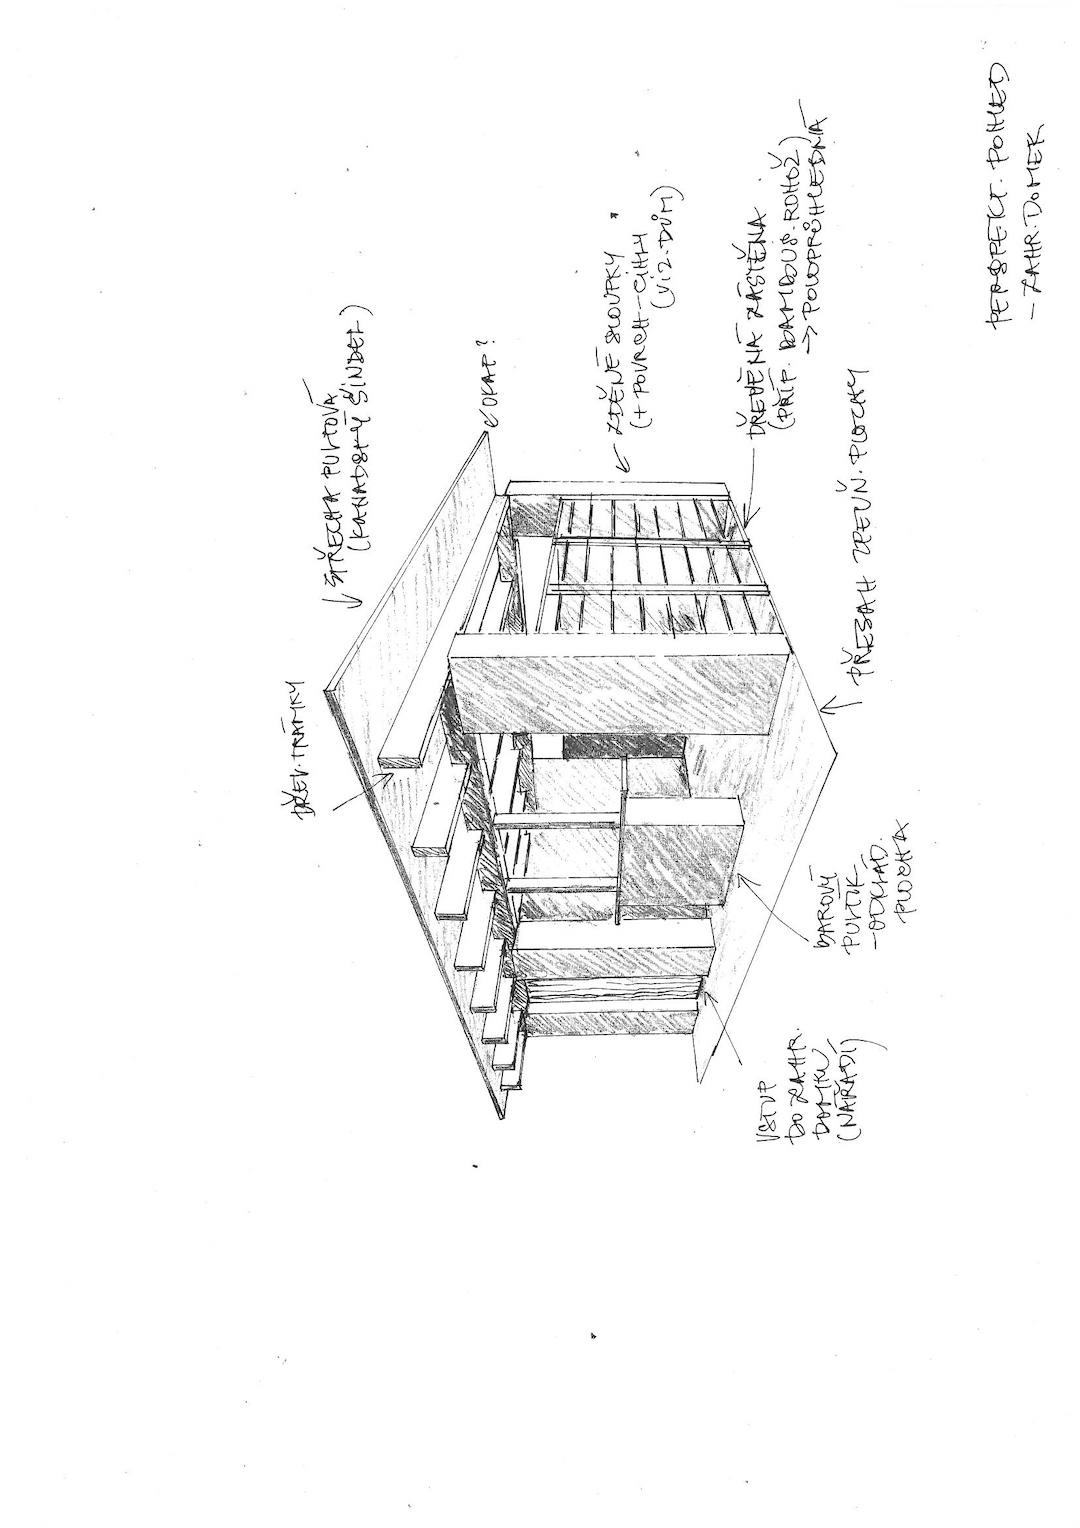 DŘEV. TRÁMKY
STŘECHA PULTOVÁ
(KANADSKÝ ŠINDEL)
OKAP?
ZDĚNÉ SLOUPKY
(+ POVRCH-CIHLY
(VIZ. DŮM)
DŘEVĚNÁ ZÁSTĚNA
(PŘÍP. BAMBUS. ROHOŽ)
→ POLOPRŮHLEDNÁ
PŘESAH ZPEVŇ. PLOCHY
BAROVÝ
PULTÍK
-ODKLÁD.
PLOCHA
VSTUP
DO ZAHR.
DOMKU
(NÁŘADÍ)
PERSPEKT. POHLED
- ZAHR. DOMEK